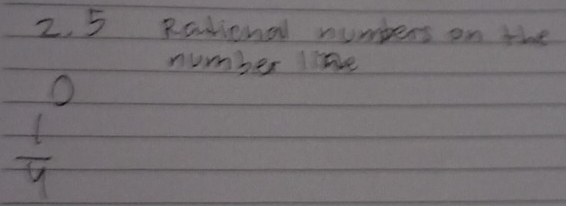 2.5 Rational numbers on the
number line
0
1
4